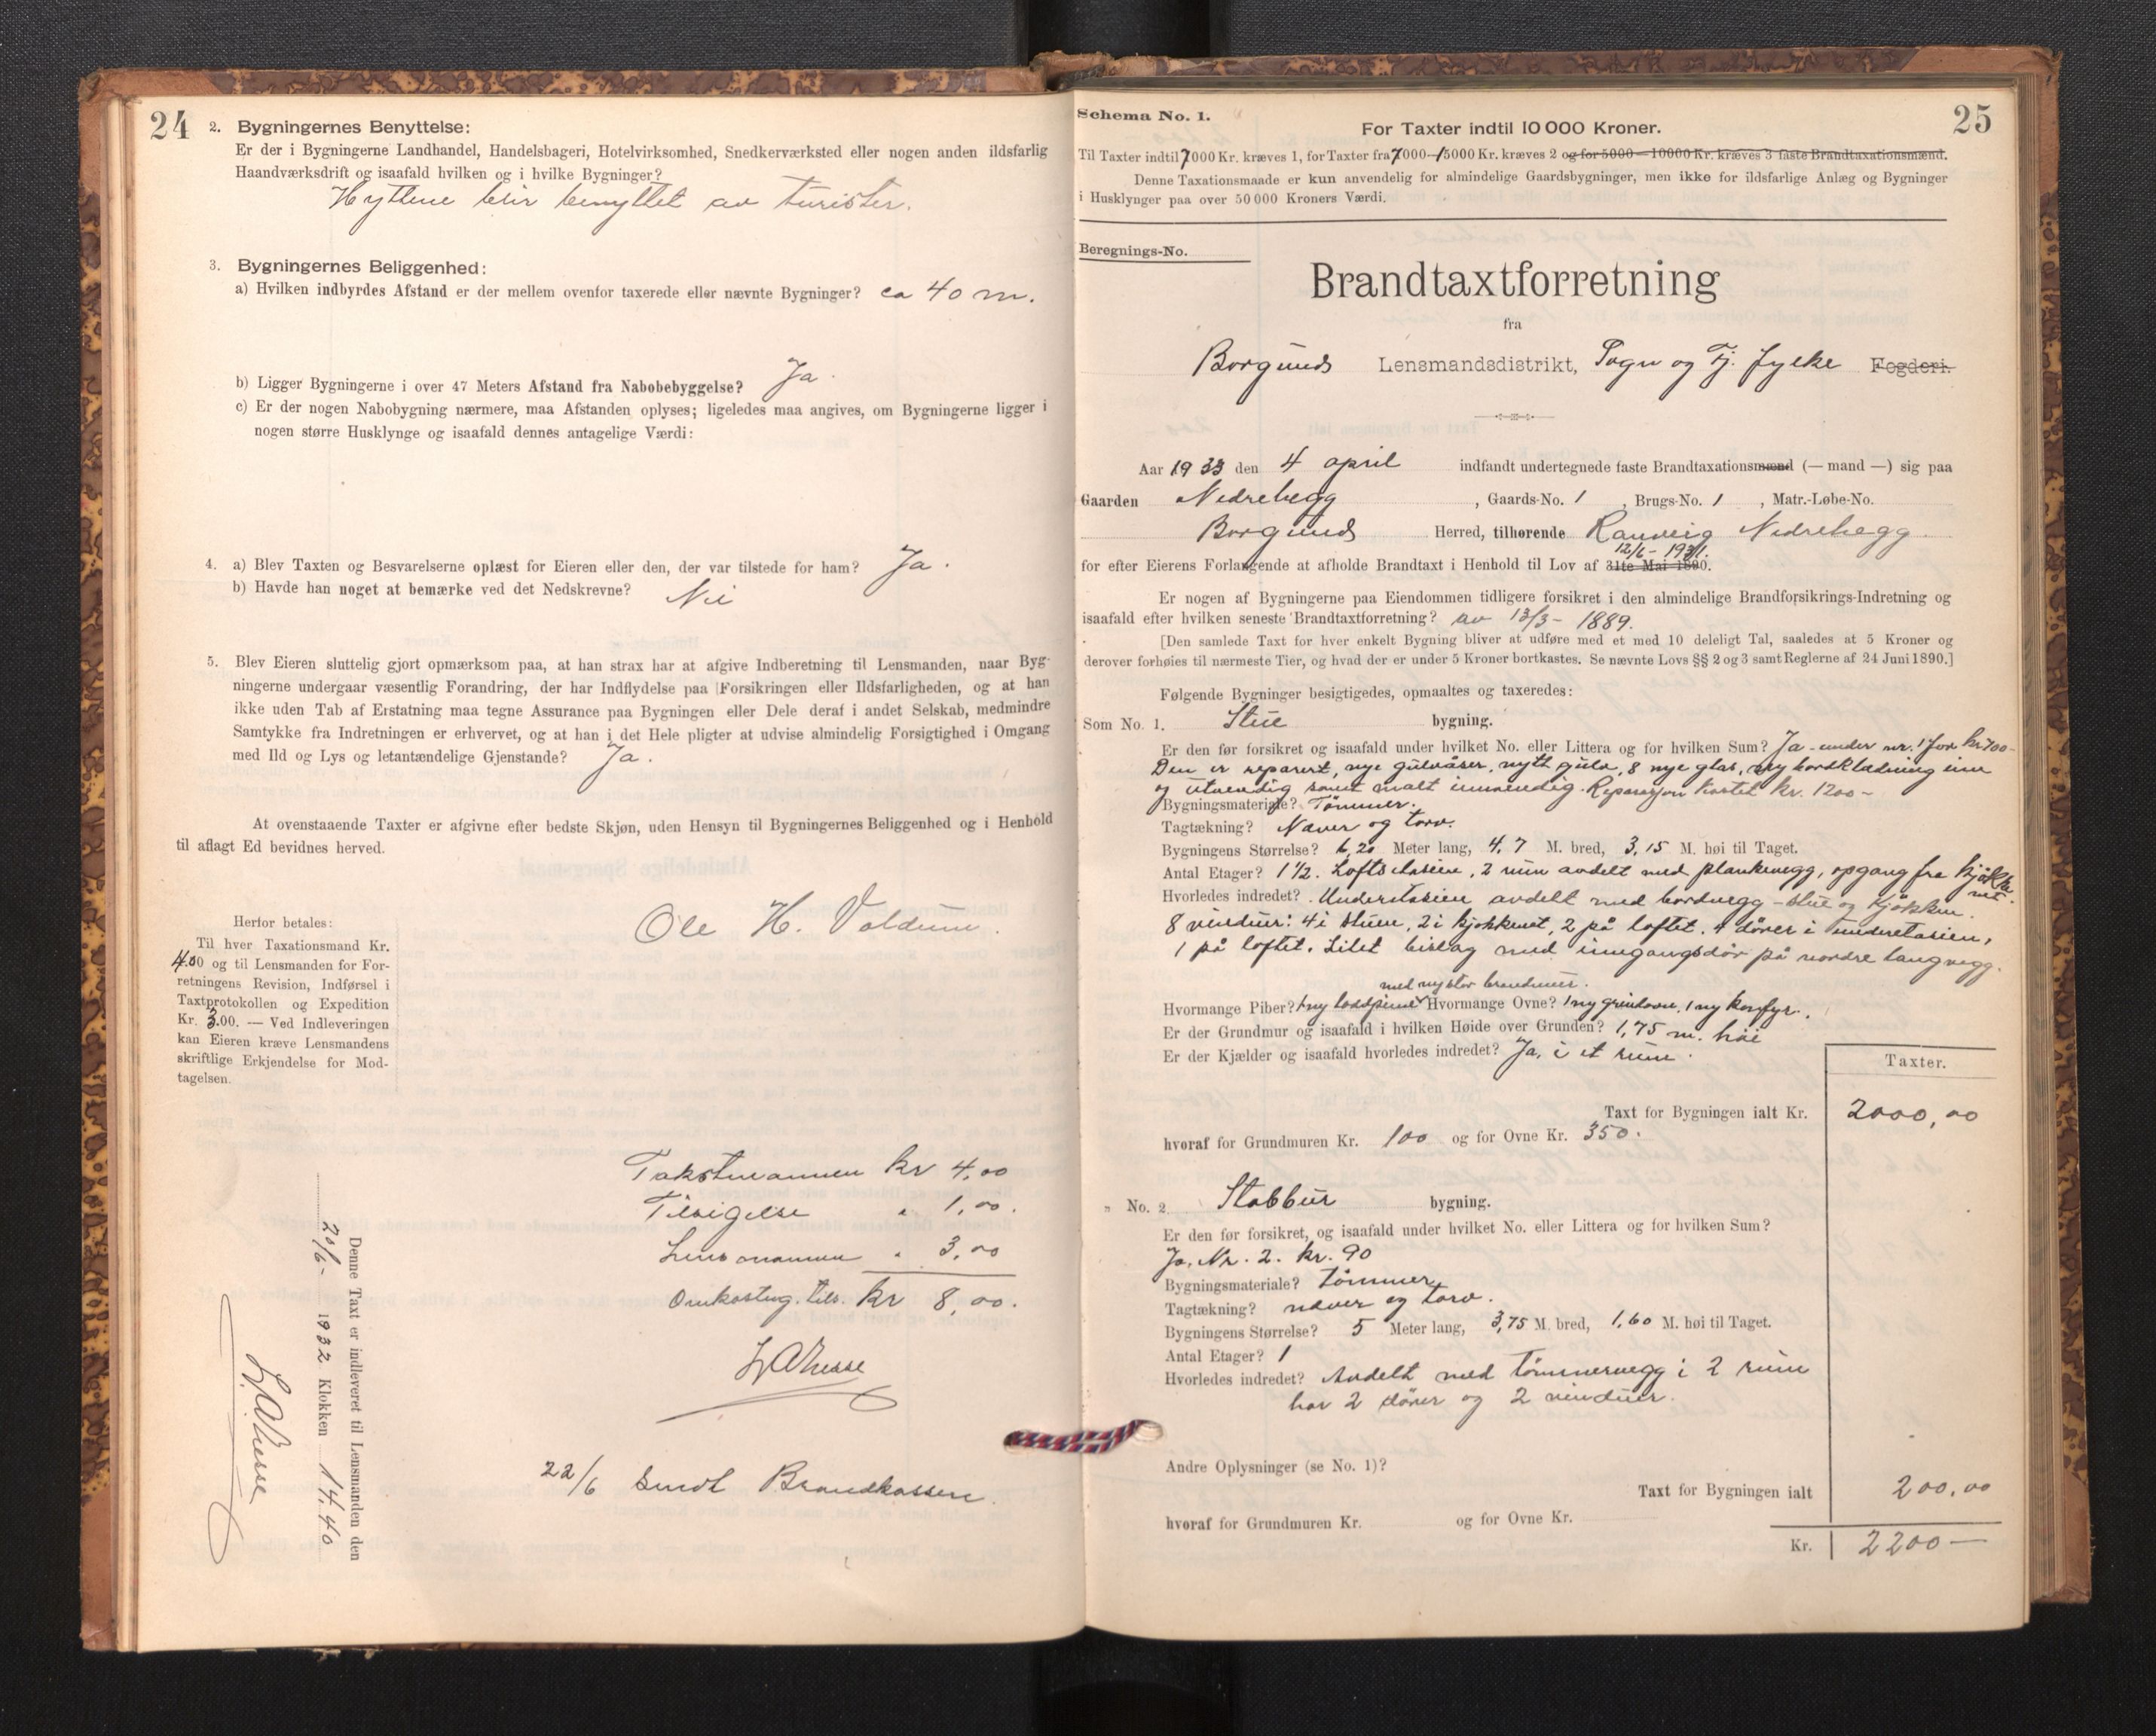 24
2. Bygningernes Benyttelse:
Er der i Bygningerne Landhandel, Handelsbageri, Hotelvirksomhed, Snedkerværksted eller nogen anden ildsfarlig
Haandværksdrift og isaafald hvilken og i hvilke Bygninger?
Hyttene blir benyttet av turister.
3. Bygningernes Beliggenhed:
a) Hvilken indbyrdes Afstand er der mellem ovenfor taxerede eller nævnte Bygninger? ca 40 m.
b) Ligger Bygningerne i over 47 Meters Afstand fra Nabobebyggelse? Ja
c) Er der nogen Nabobygning nærmere, maa Afstanden oplyses; ligeledes maa angives, om Bygningerne ligger i
nogen større Husklynge og isaafald dennes antagelige Værdi:
4. a) Blev Taxten og Besvarelserne oplæst for Eieren eller den, der var tilstede for ham? Ja.
b) Havde han noget at bemærke ved det Nedskrevne? Nei
5. Blev Eieren sluttelig gjort opmærksom paa, at han strax har at afgive Indberetning til Lensmanden, naar Byg-
ningerne undergaar væsentlig Forandring, der har Indflydelse paa Forsikringen eller Ildsfarligheden, og at han
ikke uden Tab af Erstatning maa tegne Assurance paa Bygningen eller Dele deraf i andet Selskab, medmindre
Samtykke fra Indretningen er erhvervet, og at han i det Hele pligter at udvise almindelig Forsigtighed i Omgang
med Ild og Lys og letantændelige Gjenstande? Ja.
At ovenstaaende Taxter er afgivne efter bedste Skjøn, uden Hensyn til Bygningernes Beliggenhed og i Henhold
til aflagt Ed bevidnes herved.
Ole H. Voldum.
Herfor betales:
Til hver Taxationsmand Kr.
4.00 og til Lensmanden for For-
retningens Revision, Indførsel i
Taxtprotokollen og Expedition
Kr. 3.00. — Ved Indleveringen
kan Eieren kræve Lensmandens
skriftlige Erkjendelse for Mod-
tagelsen.
Takstmannen kr 4,00
Tilsigelse " 1,00.
Lensmannen " 3,00
Omkostng. tils. kr 8,00.
22/6 sendt Brandkassen.
Denne Taxt er indleveret til Lensmanden den
20/6- 1932 Klokken 14,40
25
Schema No. 1.
For Taxter indtil 10 000 Kroner.
Til Taxter indtil 7000 Kr. kræves 1, for Taxter fra 7000—15000 Kr. kræves 2 og for 5000—10000 Kr. kræves 3 faste Brandtaxationsmænd.
Denne Taxationsmaade er kun anvendelig for almindelige Gaardsbygninger, men ikke for ildsfarlige Anlæg og Bygninger
i Husklynger paa over 50 000 Kroners Værdi.
Beregnings-No.
Brandtaxtforretning
fra
Borgunds Lensmandsdistrikt, Sogn og Fj. fylke Fogderi.
Aar 1933 den 4 april indfandt undertegnede faste Brandtaxationsmænd (— mand —) sig paa
Gaarden Nedrehegg, Gaards-No. 1, Brugs-No. 1, Matr.-Løbe-No.
Borgunds Herred, tilhørende Ranveig Nedrehegg.
12/6 - 1931.
for efter Eierens Forlangende at afholde Brandtaxt i Henhold til Lov af 31te Mai 1890.
Er nogen af Bygningerne paa Eiendommen tidligere forsikret i den almindelige Brandforsikrings-Indretning og
isaafald efter hvilken seneste Brandtaxtforretning? av 13/3 - 1889.
[Den samlede Taxt for hver enkelt Bygning bliver at udføre med et med 10 deleligt Tal, saaledes at 5 Kroner og
derover forhøies til nærmeste Tier, og hvad der er under 5 Kroner bortkastes. Se nævnte Lovs §§ 2 og 3 samt Reglerne af 24 Juni 1890.]
Følgende Bygninger besigtigedes, opmaaltes og taxeredes:
Som No. 1. Stue bygning.
Er den før forsikret og isaafald under hvilket No. eller Littera og for hvilken Sum? Ja - under nr. 1 for kr 700-
Den er reparert, nye gulvåser, nytt gulv, 8 nye glas, ny bordkledning inn
og utvendig samt malt innvendig. Reparasjon kostet kr. 1200-
Bygningsmateriale? Tømmer.
Tagtækning? Never og torv.
Bygningens Størrelse? 6,20 Meter lang, 4,7 M. bred, 3,15 M. høi til Taget.
Antal Etager? 1 1/2. Loftsetasien, 2 rum avdelt med plankevegg, opgang fra kjøkke-
net.
Hvorledes indredet? Underetasien avdelt med bordvegg - stue og kjøkken.
8 vinduer: 4 i stuen, 2 i kjøkkenet, 2 på loftet. 4 dører i underetasien,
1 på loftet. Litet bislag med inngangsdør på nordre langvegg.
med ny stor brandmur.
Hvormange Piber? 1 ny loddpipe Hvormange Ovne? 1 ny grindovn, 1 ny komfyr.
Er der Grundmur og isaafald i hvilken Høide over Grunden? 1,75 m. høi
Er der Kjælder og isaafald hvorledes indredet? Ja, i et rum.
Taxter.
Taxt for Bygningen ialt Kr. 2000,00
hvoraf for Grundmuren Kr. 100 og for Ovne Kr. 350.
" No. 2. Stabbur bygning.
Er den før forsikret, og isaafald under hvilket No. eller Littera og for hvilken Sum?
Ja. Nr. 2. kr. 90
Bygningsmateriale? tømmer
Tagtækning? never og torv.
Bygningens Størrelse? 5 Meter lang, 3,75 M. bred, 1,60 M. høi til Taget.
Antal Etager? 1
Hvorledes indredet? Avdelt med tømmervegg i 2 rum
har 2 dører og 2 vinduer.
Andre Oplysninger (se No. 1)?
Taxt for Bygningen ialt 200,00
hvoraf for Grundmuren Kr. og for Ovne Kr.
Kr. 2200—